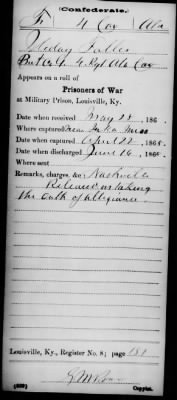 Confederate.
F 4 Cav Ala
Appears on a roll of
Prisoners of War
at Military Prison, Louisville, Ky.
Date received May 28, 186 .
Where captured Near Iuka Miss
Date when captured April 22, 1865.
Date when discharged June 16, 1865.
Where sent
Remarks, charges, &c Nashville
Released on taking
the oath of allegiance.
Louisville, Ky., Register No. 8; page
Copyist.